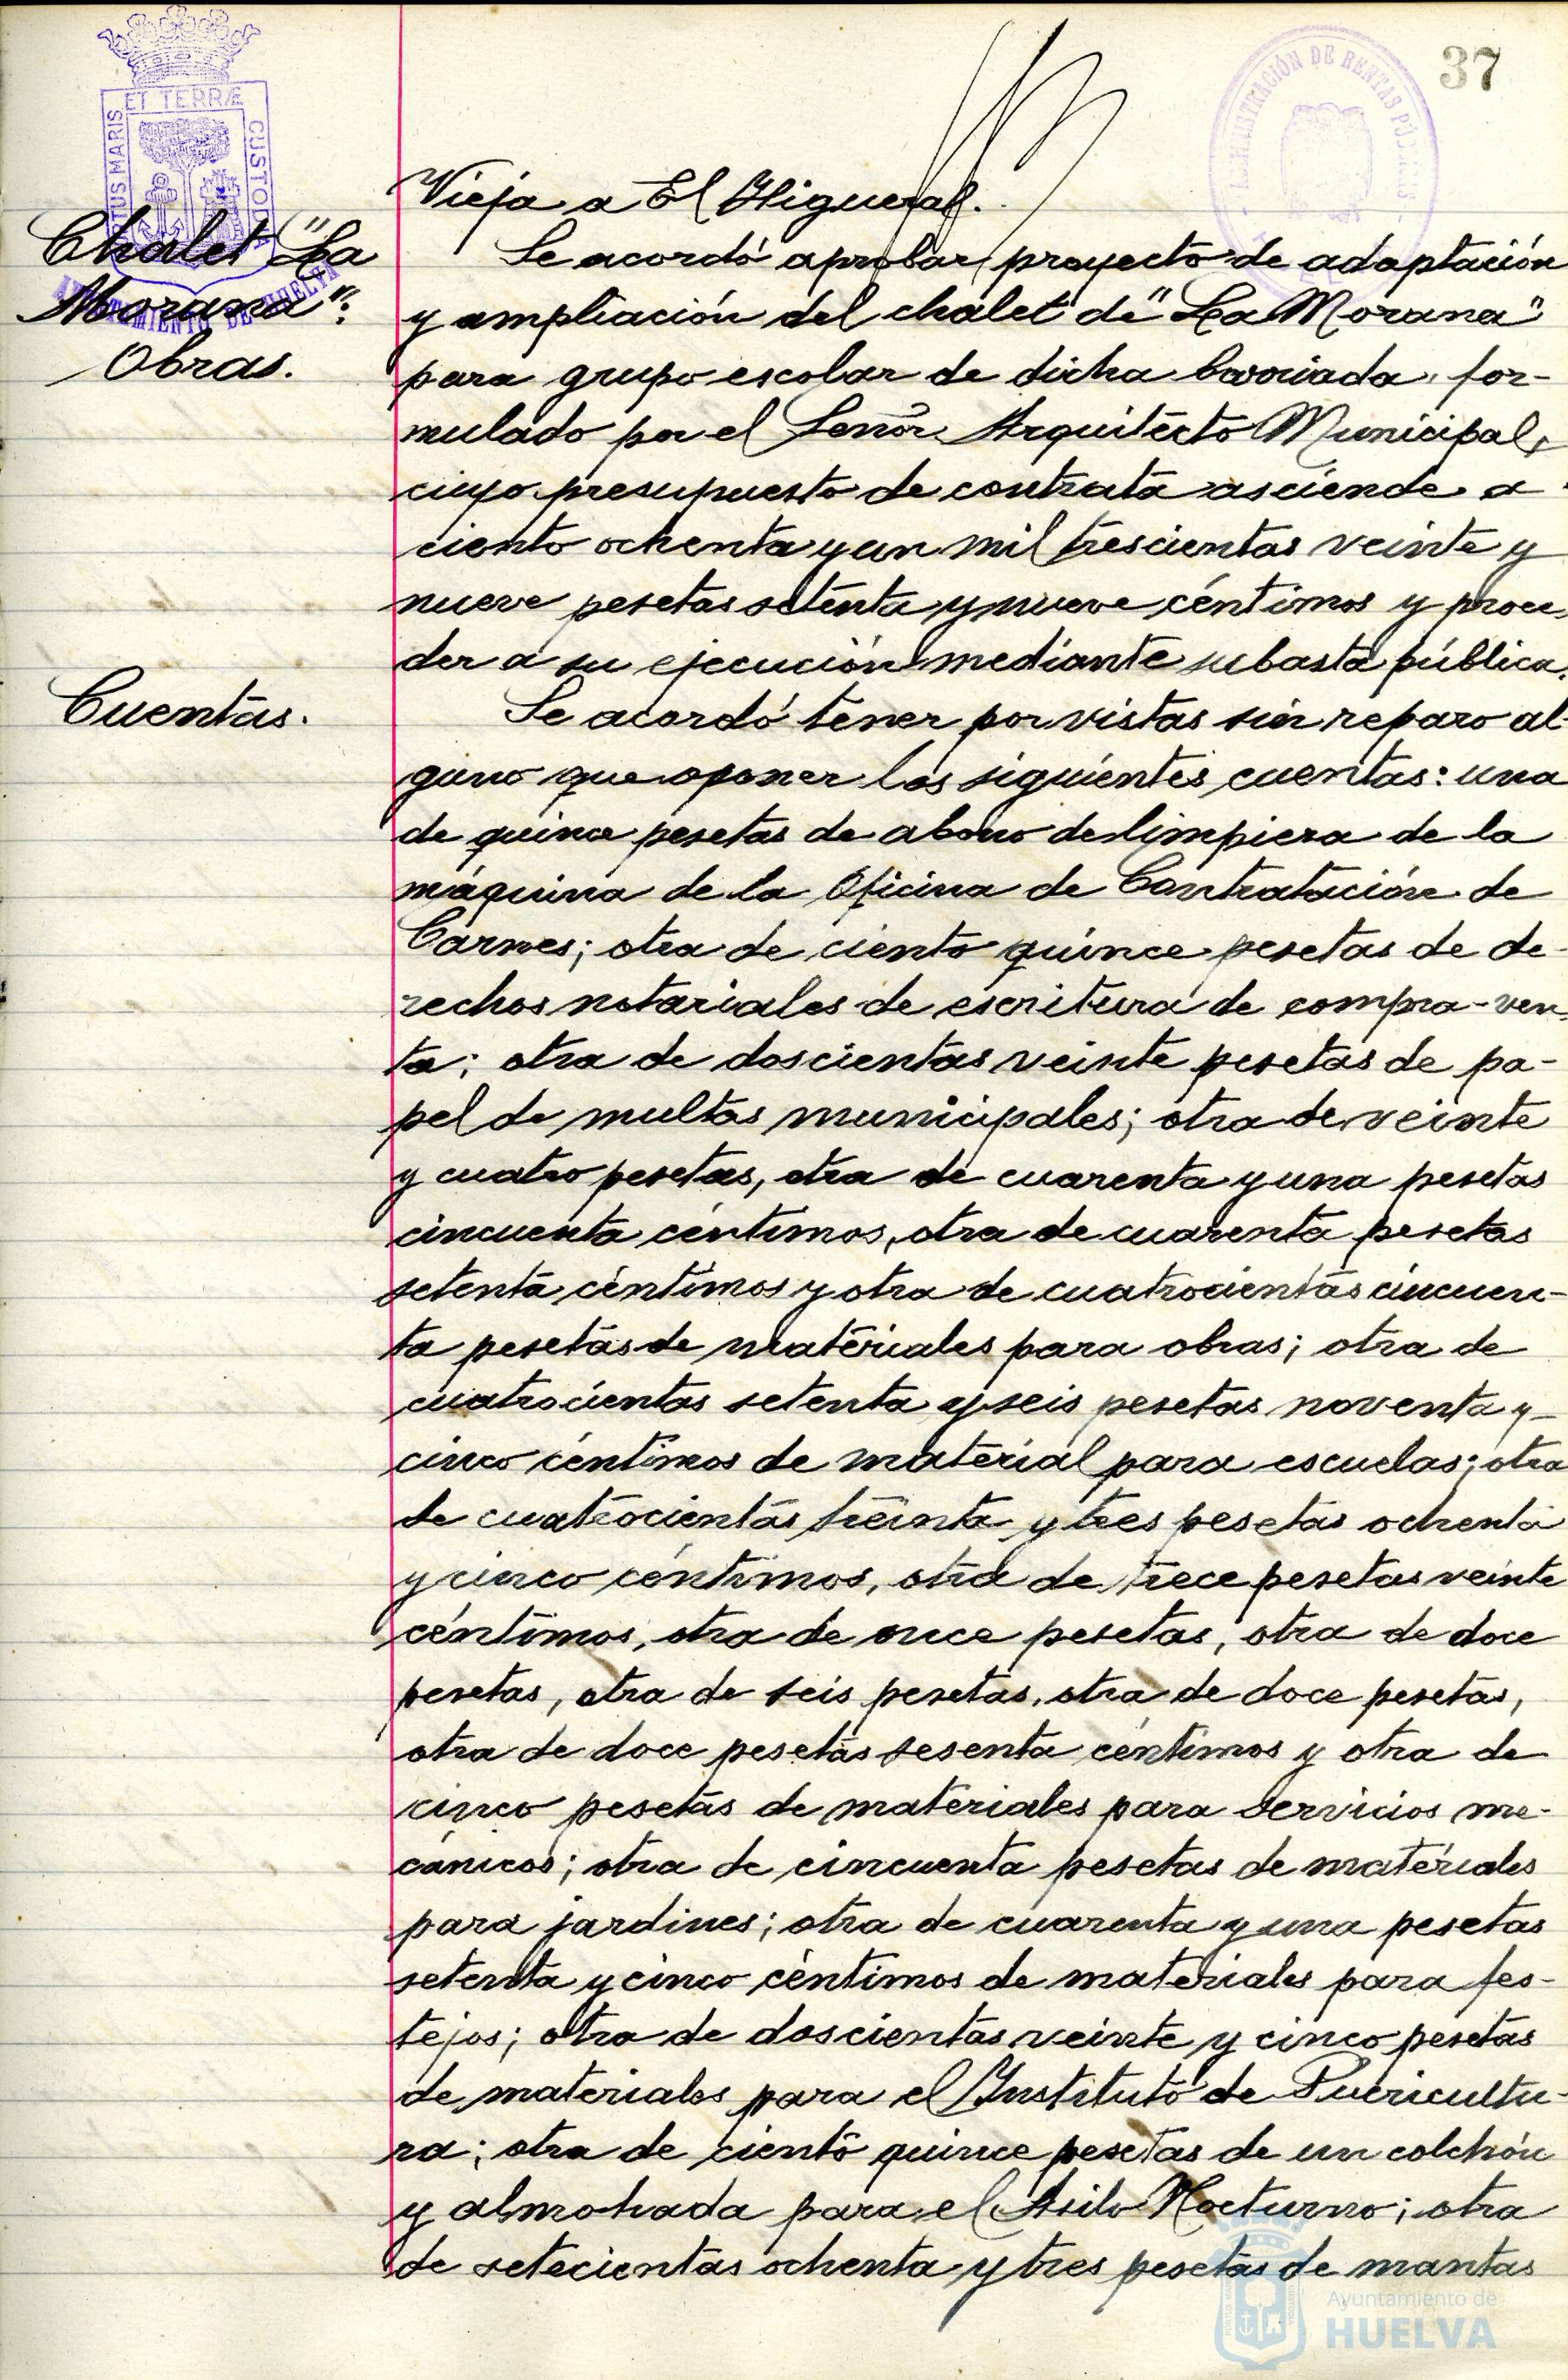 37
ET TERRÆ
PORTUS MARIS
CUSTODIA
AYUNTAMIENTO DE HUELVA
ADMINISTRACIÓN DE RENTAS PÚBLICAS
Vieja a El Higueral.
Chalet "La
Morana":
Obras.
Se acordó aprobar proyecto de adaptación
y ampliación del chalet de "La Morana"
para grupo escolar de dicha barriada, for-
mulado por el Señor Arquitecto Municipal,
cuyo presupuesto de contrata asciende a
ciento ochenta y un mil trescientas veinte y
nueve pesetas setenta y nueve céntimos y proce-
der a su ejecución mediante subasta pública.
Cuentas.
Se acordó tener por vistas sin reparo al-
guno que oponer las siguientes cuentas: una
de quince pesetas de abono de limpieza de la
máquina de la Oficina de Contratación de
Carnes; otra de ciento quince pesetas de de-
rechos notariales de escritura de compra-ven-
ta; otra de doscientas veinte pesetas de pa-
pel de multas municipales; otra de veinte
y cuatro pesetas, otra de cuarenta y una pesetas
cincuenta céntimos, otra de cuarenta pesetas
setenta céntimos y otra de cuatrocientas cincuen-
ta pesetas de materiales para obras; otra de
cuatrocientas setenta y seis pesetas noventa y
cinco céntimos de material para escuelas; otra
de cuatrocientas treinta y tres pesetas ochenta
y cinco céntimos, otra de trece pesetas veinte
céntimos, otra de once pesetas, otra de doce
pesetas, otra de seis pesetas, otra de doce pesetas,
otra de doce pesetas sesenta céntimos y otra de
cinco pesetas de materiales para servicios me-
cánicos; otra de cincuenta pesetas de materiales
para jardines; otra de cuarenta y una pesetas
setenta y cinco céntimos de materiales para fes-
tejos; otra de doscientas veinte y cinco pesetas
de materiales para el Instituto de Puericultu-
ra; otra de ciento quince pesetas de un colchón
y almohada para el Asilo Nocturno; otra
de setecientas ochenta y tres pesetas de mantas
Ayuntamiento de
HUELVA